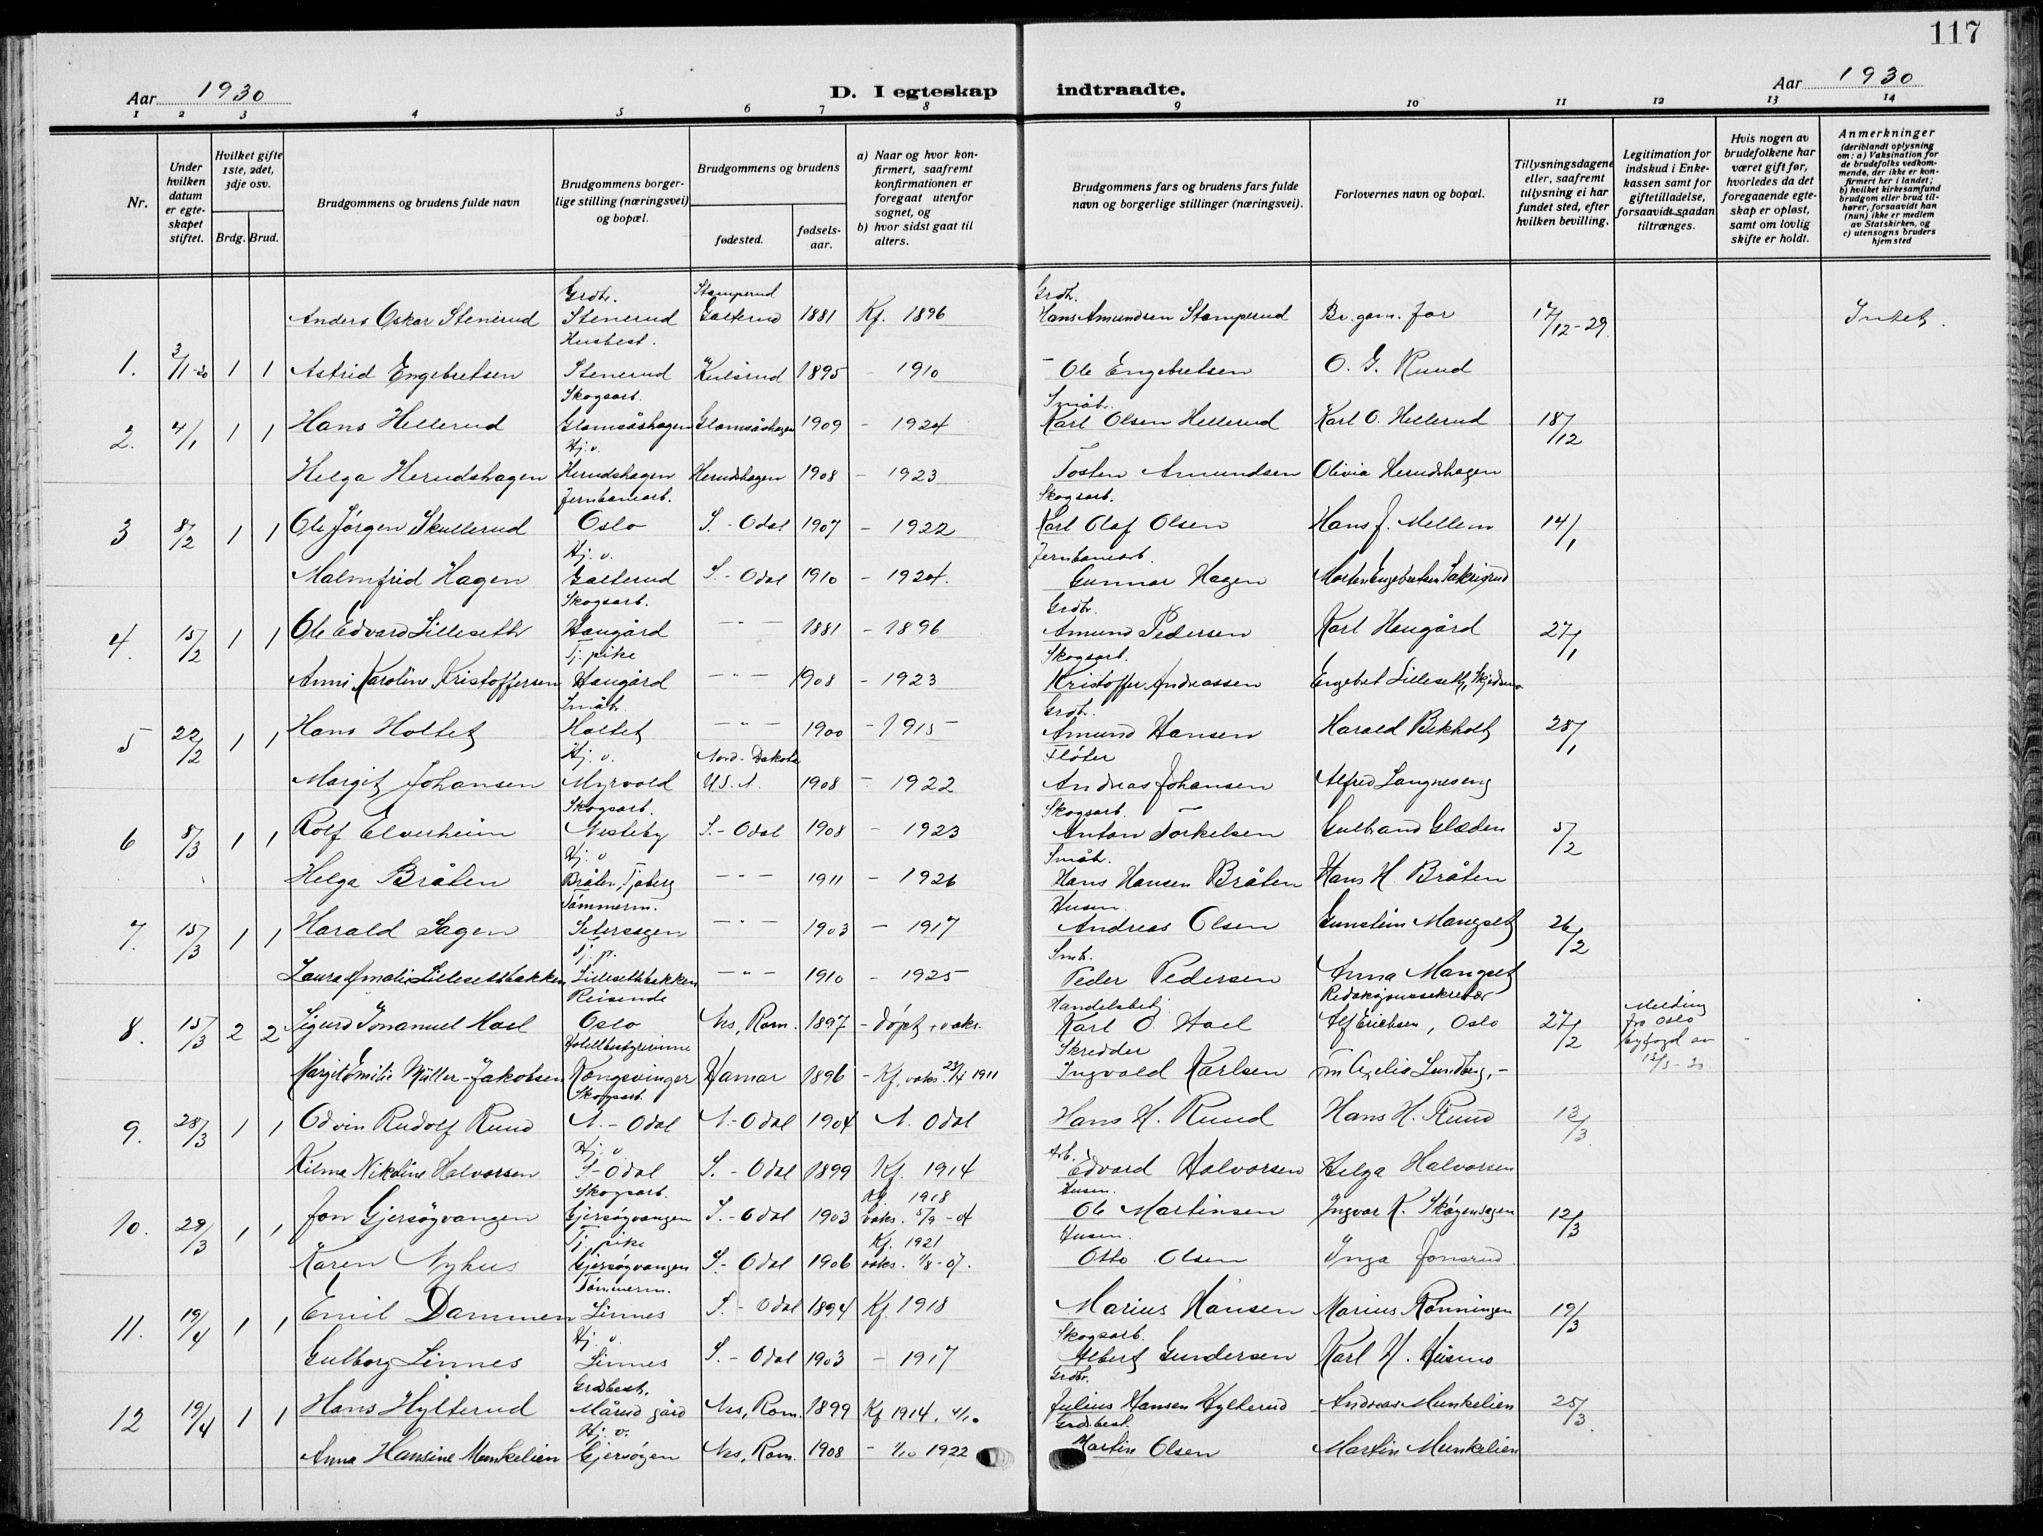 117
Aar 1930
D. I egteskap indtraadte.
Aar 1930
1 2 3 4 5 6 7 8 9 10 11 12 13 14
Nr.
Under hvilken datum er egteskapet stiftet.
Hvilket gifte 1ste, 2det, 3dje osv.
Brdg. Brud.
Brudgommens og brudens fulde navn
Brudgommens borgerlige stilling (næringsvei) og bopæl.
Brudgommens og brudens
fødested.
fødselsaar.
a) Naar og hvor konfirmert, saafremt konfirmationen er foregaat utenfor sognet, og
b) hvor sidst gaat til alters.
Brudgommens fars og brudens fars fulde navn og borgerlige stillinger (næringsvei).
Forlovernes navn og bopæl.
Tillysningsdagene eller, saafremt tillysning ei har fundet sted, efter hvilken bevilling.
Legitimation for indskud i Enkekassen samt for giftetilladelse, forsaavidt saadan tiltrænges.
Hvis nogen av brudefolkene har været gift før, hvorledes da det foregaaende egteskap er opløst, samt om lovlig skifte er holdt.
Anmerkninger
(deriblandt oplysning om: a) Vaksination for de brudefolks vedkommende, der ikke er konfirmert her i landet; b) hvilket kirkesamfund brudgom eller brud tilhører, forsaavidt han (hun) ikke er medlem av Statskirken, og c) utensogns bruders hjemsted
Grdbr. Stamperud Grdbr.
Anders Oskar Stenerud Stenerud Galterud 1881 Kf. 1896 Hans Amundsen Stamperud Br.gom. far 17/12-29 Intet.
Husbest.
1. 3/11-30 1 1 Astrid Engebretsen Stenerud Kulsrud 1895 - 1910 - Ole Engebretsen O. G. Ruud
Skogsarb. Småbr.
2. 4/1 1 1 Hans Hellerud Glomsåshagen Glomsåshagen 1909 - 1924 Karl Olsen Hellerud Karl O. Hellerud 18/12
Hj. v.
Helga Herudshagen Herudshagen Herudshagen 1908 - 1923 Tosten Amundsen Olivia Herudshagen
Jernbanearb. Skogsarb.
3 8/2 1 1 Ole Jørgen Skullerud Oslo S.-Odal 1907 - 1922 Karl Olaf Olsen Hans J. Mellem 14/1
Hj. v. Jernbanearb.
Malmfrid Hagen Galterud S.-Odal 1910 - 1924. Gunnar Hagen Morten Engebretsen
Skogsarb. Grdbr.
4. 15/2 1 1 Ole Edvard Lilleseth Haugård - " - 1881 - 1896 Amund Pedersen Karl Haugård 27/1
Tj. pike Skogsarb.
Anni Karoline Kristoffersen Haugård - " - 1908 - 1923 Kristoffer Andreassen Engebret Lilleseth,
Småbr. Grdbr.
5 22/2 1 1 Hans Holtet Holtet - " - 1900 - 1915 Amund Hansen Harald Bekholt 28/1
Hj. v. Nord-Dakota Fløter
Margit Johansen Myrvold U.S.A. 1908 - 1922 Andreas Johansen Alfred Langneseng
Skogsarb. Skogsarb.
6 8/3 1 1 Rolf Elverheim Nesteby S.-Odal 1908 - 1923 Anton Torkelsen Gulbrand Glæden 5/2
Hj. v Småbr.
Helga Bråten Bråten, Tjaberg - " - 1911 - 1926 Hans Hansen Bråten Hans H. Bråten
Tømmerm. Husm.
7. 15/3 1 1 Harald Sagen Setersagen - " - 1903 - 1917 Andreas Olsen Gunstein Mangset 26/2
Tj. p. Smbr.
Laura Amalie Lillesethbakken Lillesethbakken - " - 1910 - 1925 Peder Pedersen Anna Mangset
Reisende Handelsbetj. Redaksjonssekretær
8. 15/3 2 2 Sigurd Imanuel Hoel Oslo Nes, Rom. 1897 - døpt, vaks. Karl O Hoel Alf Erichsen, Oslo 27/2 Melding fra Oslo byfogd av 12/3-30
Hotellbestyrerinne Skredder
Margit Emilie Müller-Jakobsen Kongsvinger Hamar 1896 - Kf, vaks. 23/4 1911 Ingvald Karlsen
Skogsarb.
9. 28/3 1 1 Odvin Rudolf Ruud N.-Odal N-Odal 1904 N. Odal Hans H. Ruud Hans H. Ruud 13/3
Hj. v Arb.
Kilma Nikoline Halvorsen S-Odal S.-Odal 1899 Kf. 1914 Edvard Halvorsen Helga Halvorsen
Skogsarb. Kf. 1918 Husm.
10. 29/3 1 1 Jon Gjersøgvangen Gjersøgvangen S.-Odal 1903 vaks. 5/9-04 Ole Martinsen Ingvar K. Skøgensagen 12/3
Tj. pike Kf. 1921 Husm.
Karen Nyhus Gjersøgvangen S-Odal 1906 vaks. 1/8-07. Otto Olsen Inga Jonsrud
Tømmerm.
11. 19/4 1 1 Emil Dammen Linnes S.-Odal 1894 Kf. 1918 Marius Hansen Marius Rønningen 19/3
Hj. v. Skogsarb.
Gulborg Linnes Linnes S.-Odal 1903 - 1917 Albert Gundersen Karl H. Husmo
Grdbest. Grdbr.
12 19/4 1 1 Hans Hylterud Mårud gård Nes, Rom. 1899 Kf 1914. 4/10 Julius Hansen Hylterud Andreas Munkelien 25/3
Hj. v. Grdbest.
Anna Hansine Munkelien Gjersøgen Nes, Rom. 1908 - 1/10 1922 Martin Olsen Martin Munkelien